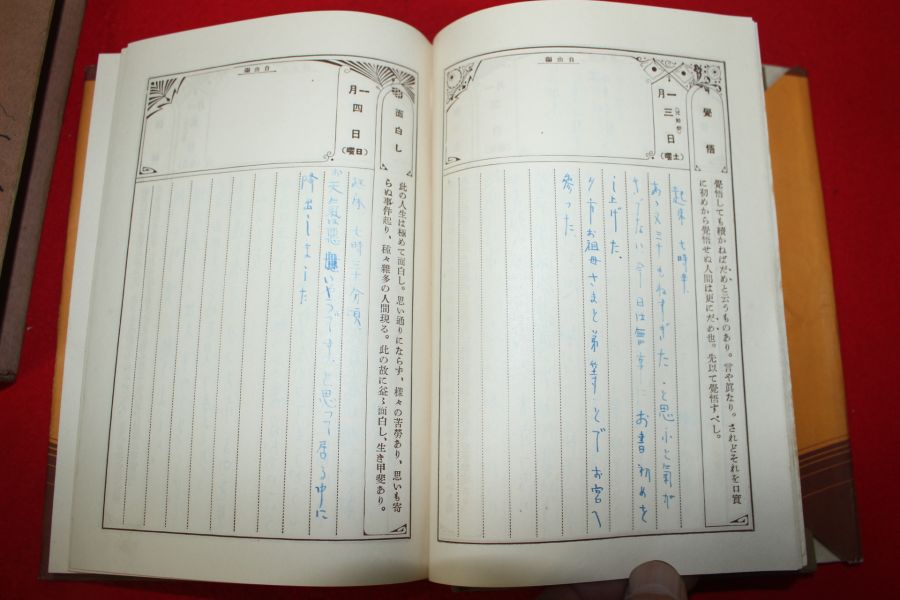 覺悟
覺悟しても積かねばだめと云うものあり。言や眞なり。されどそれを口實
に初めから覺悟せぬ人間は更にだめ也。先以て覺悟すべし。
一月三日
(土曜)
自由欄
起床 七時半
あゝ又三十もねすぎた、と思ふと氣が
今日は無事に お書初めを
し上げた、
夕方お祖母さまと弟等とでお宮へ
参った。
面白し
此の人生は極めて面白し。思い通りにならず、樣々の苦勞あり、思いも寄
らぬ事件起り、種々雜多の人間現る。此の故に益々面白し、生き甲斐あり。
一月四日
(日曜)
自由欄
起床 七時三十分頃、
お天氣悪いやうです、と思って居る中に
降出しました